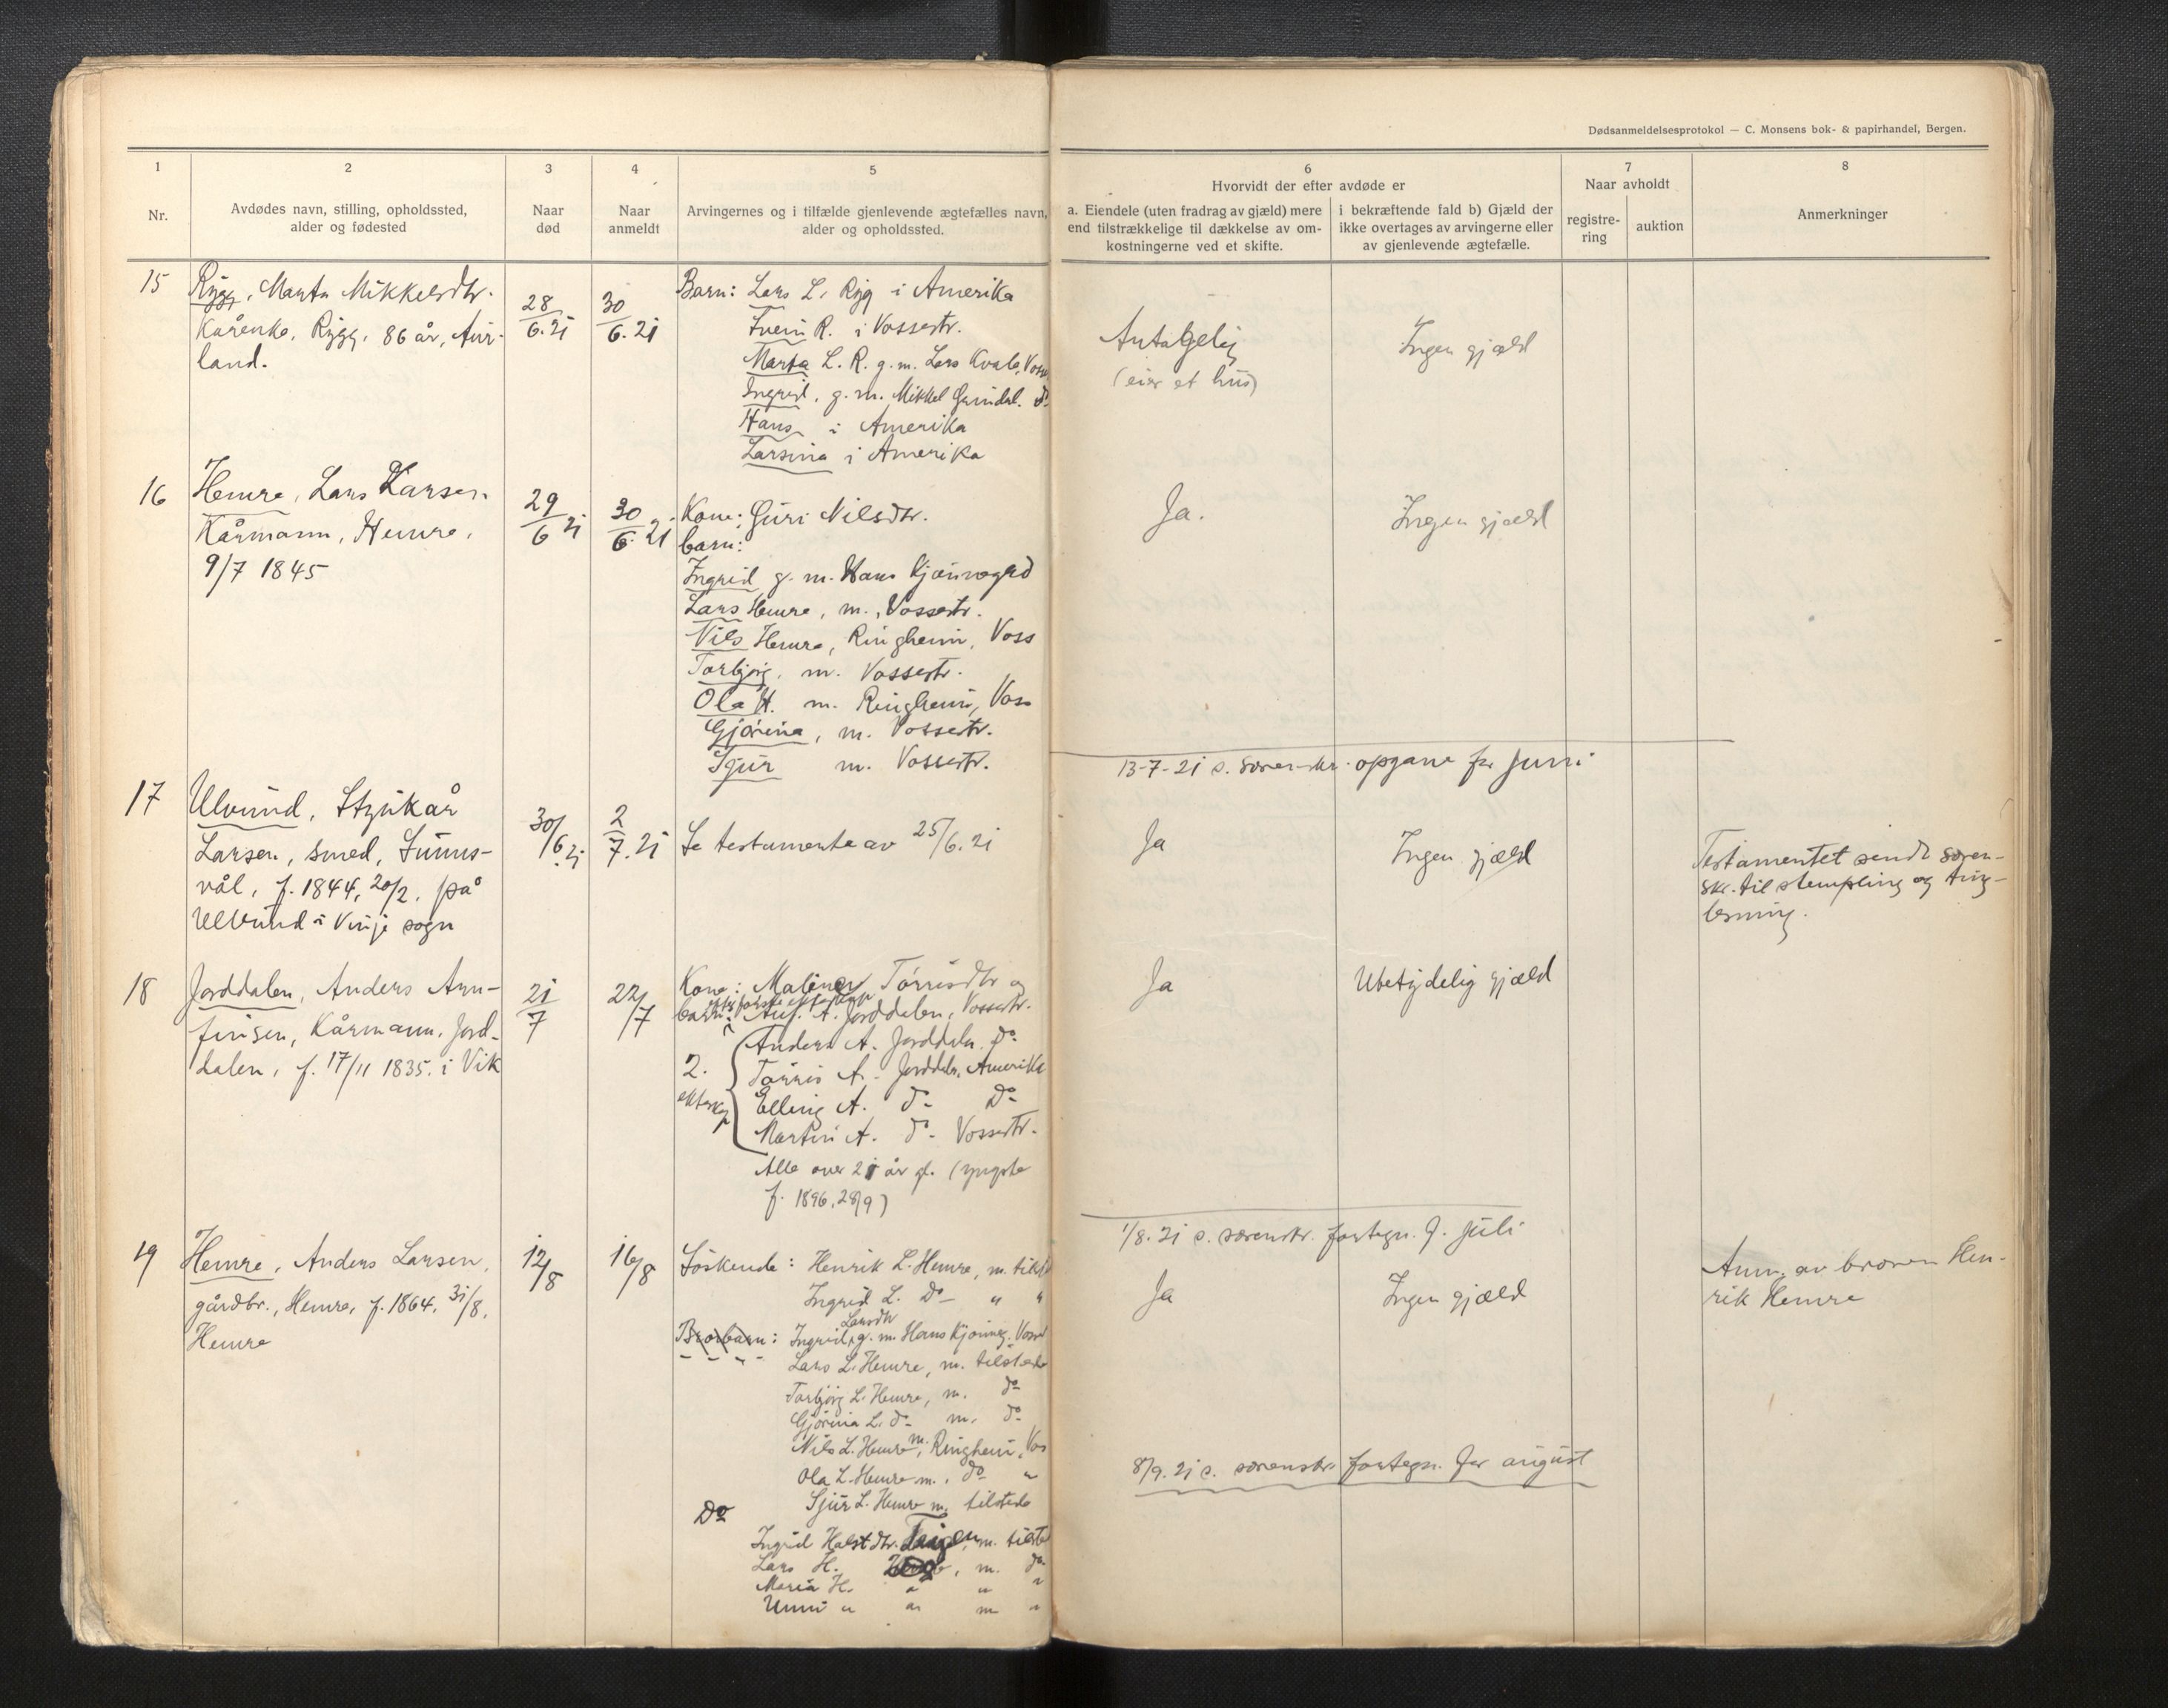 Dødsanmeldelsesprotokol — C. Monsens bok- & papirhandel, Bergen.
1
Nr.
2
Avdødes navn, stilling, opholdssted,
alder og fødested
3
Naar
død
4
Naar
anmeldt
5
Arvingernes og i tilfælde gjenlevende ægtefælles navn,
alder og opholdssted.
6
Hvorvidt der efter avdøde er
a. Eiendele (uten fradrag av gjæld) mere
end tilstrækkelige til dækkelse av om-
kostningerne ved et skifte.
i bekræftende fald b) Gjæld der
ikke overtages av arvingerne eller
av gjenlevende ægtefælle.
7
Naar avholdt
registre-
ring
auktion
8
Anmerkninger
15
Rygg, Marta Mikkelsdtr.
Kårenke, Rygg, 86 år, Aur-
land.
28/6.21
30/6.21
Barn: Lars L. Ryg i Amerika
Svein R. i Vossestr.
Marta L. R. g. m. Lars Kvale, Voss
Ingrid, g. m. Mikkel do
Hans i Amerika
Larsina i Amerika
Antagelig
(eier et hus)
Ingen gjæld
16
Hemre, Lars Larsen
Kårmann, Hemre,
9/7 1845
29/6 21
30/6.21
Kone: Guri Nilsdtr.
barn:
Ingrid g. m. Hans
Lars Hemre, m., Vossestr.
Nils Hemre, Ringheim, Voss
Torbjørg, m. Vossestr.
Ola H. m. Ringheim, Voss
Gjørina, m. Vossestr.
Sjur m. Vossestr.
Ja.
Ingen gjæld
13-7-21 s. soren-skr. opgave for juni
17
Ulvund, Styrkår
Larsen, smed,
vål, f. 1844, 20/2, på
Ulvund i Vinje sogn
30/6.21
2/7.21
Se testamente av 25/6.21
Ja
Ingen gjæld
Testamentet sendt soren-
skr. til stempling og ting-
lesning.
18
Jorddalen, Anders Arn-
finsen, Kårmann, Jord-
dalen, f. 17/11 1835. i Vik
21/7
22/7
Kone: Malene Tørrisdtr og
barn: Anf. A. Jorddalen, Vossestr.
2. ekteskap
Anders A. Jorddalen. do
Tørris A. Jorddalen, Amerika
Elling A. do Do
Martin A. do Vossestr.
Alle over 21 år gl. (yngste
f. 1896, 28/9)
Ja
Ubetydelig gjæld
1/8. 21 s. sorenskr. fortegn. f. juli
19
Hemre, Anders Larsen,
gårdbr., Hemre, f. 1864, 31/8,
Hemre
12/8
16/8
Søskende: Henrik L. Hemre, m. tilst
Ingrid L. Do " "
Brorbarn: Ingrid Larsdtr g. m. Hans
Lars L. Hemre, m. tilstede
Torbjørg L. Hemre, m. do
Gjørina L. do m. do
Nils L. Hemre m, Ringheim, Vos
Ola L. Hemre m. do "
Sjur L. Hemre m. tilstede
Do
Ingrid Halstdtr. Teigen, m. tilste
Lars H. m. do
Maria H. " " "
Unni " " m "
Ja
Ingen gjæld
Anm. av broren Hen-
rik Hemre
8/9. 21 s. sorenskr. fortegn. for august